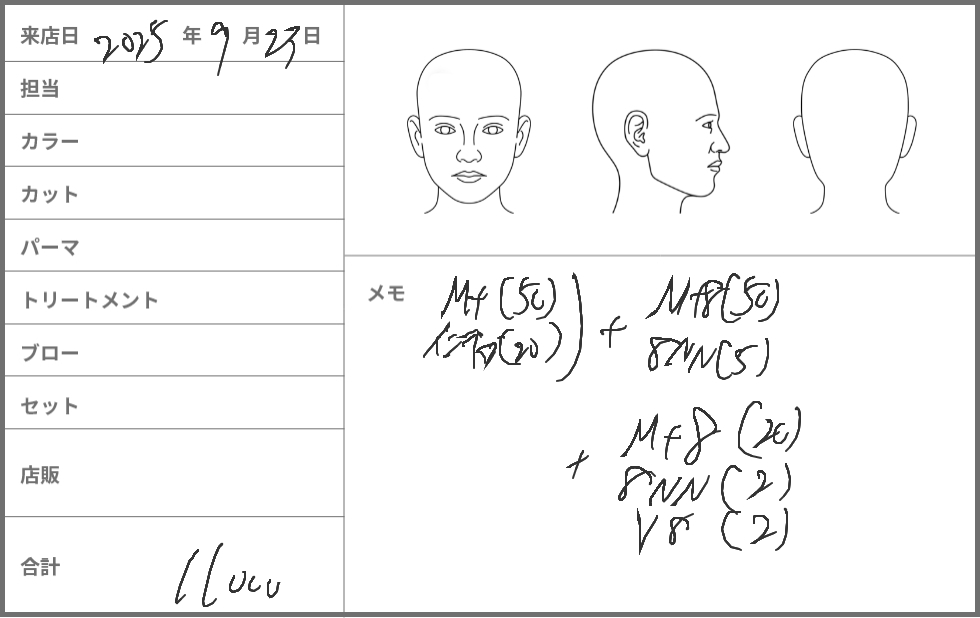 来店日 2025 年 9 月 23 日
担当
カラー
カット
パーマ
トリートメント
ブロー
セット
店販
合計 11000
メモ
Mt (50)
(20)
+
Mt8 (50)
8NN (5)
+
Mt8 (20)
8NN (2)
V8 (2)